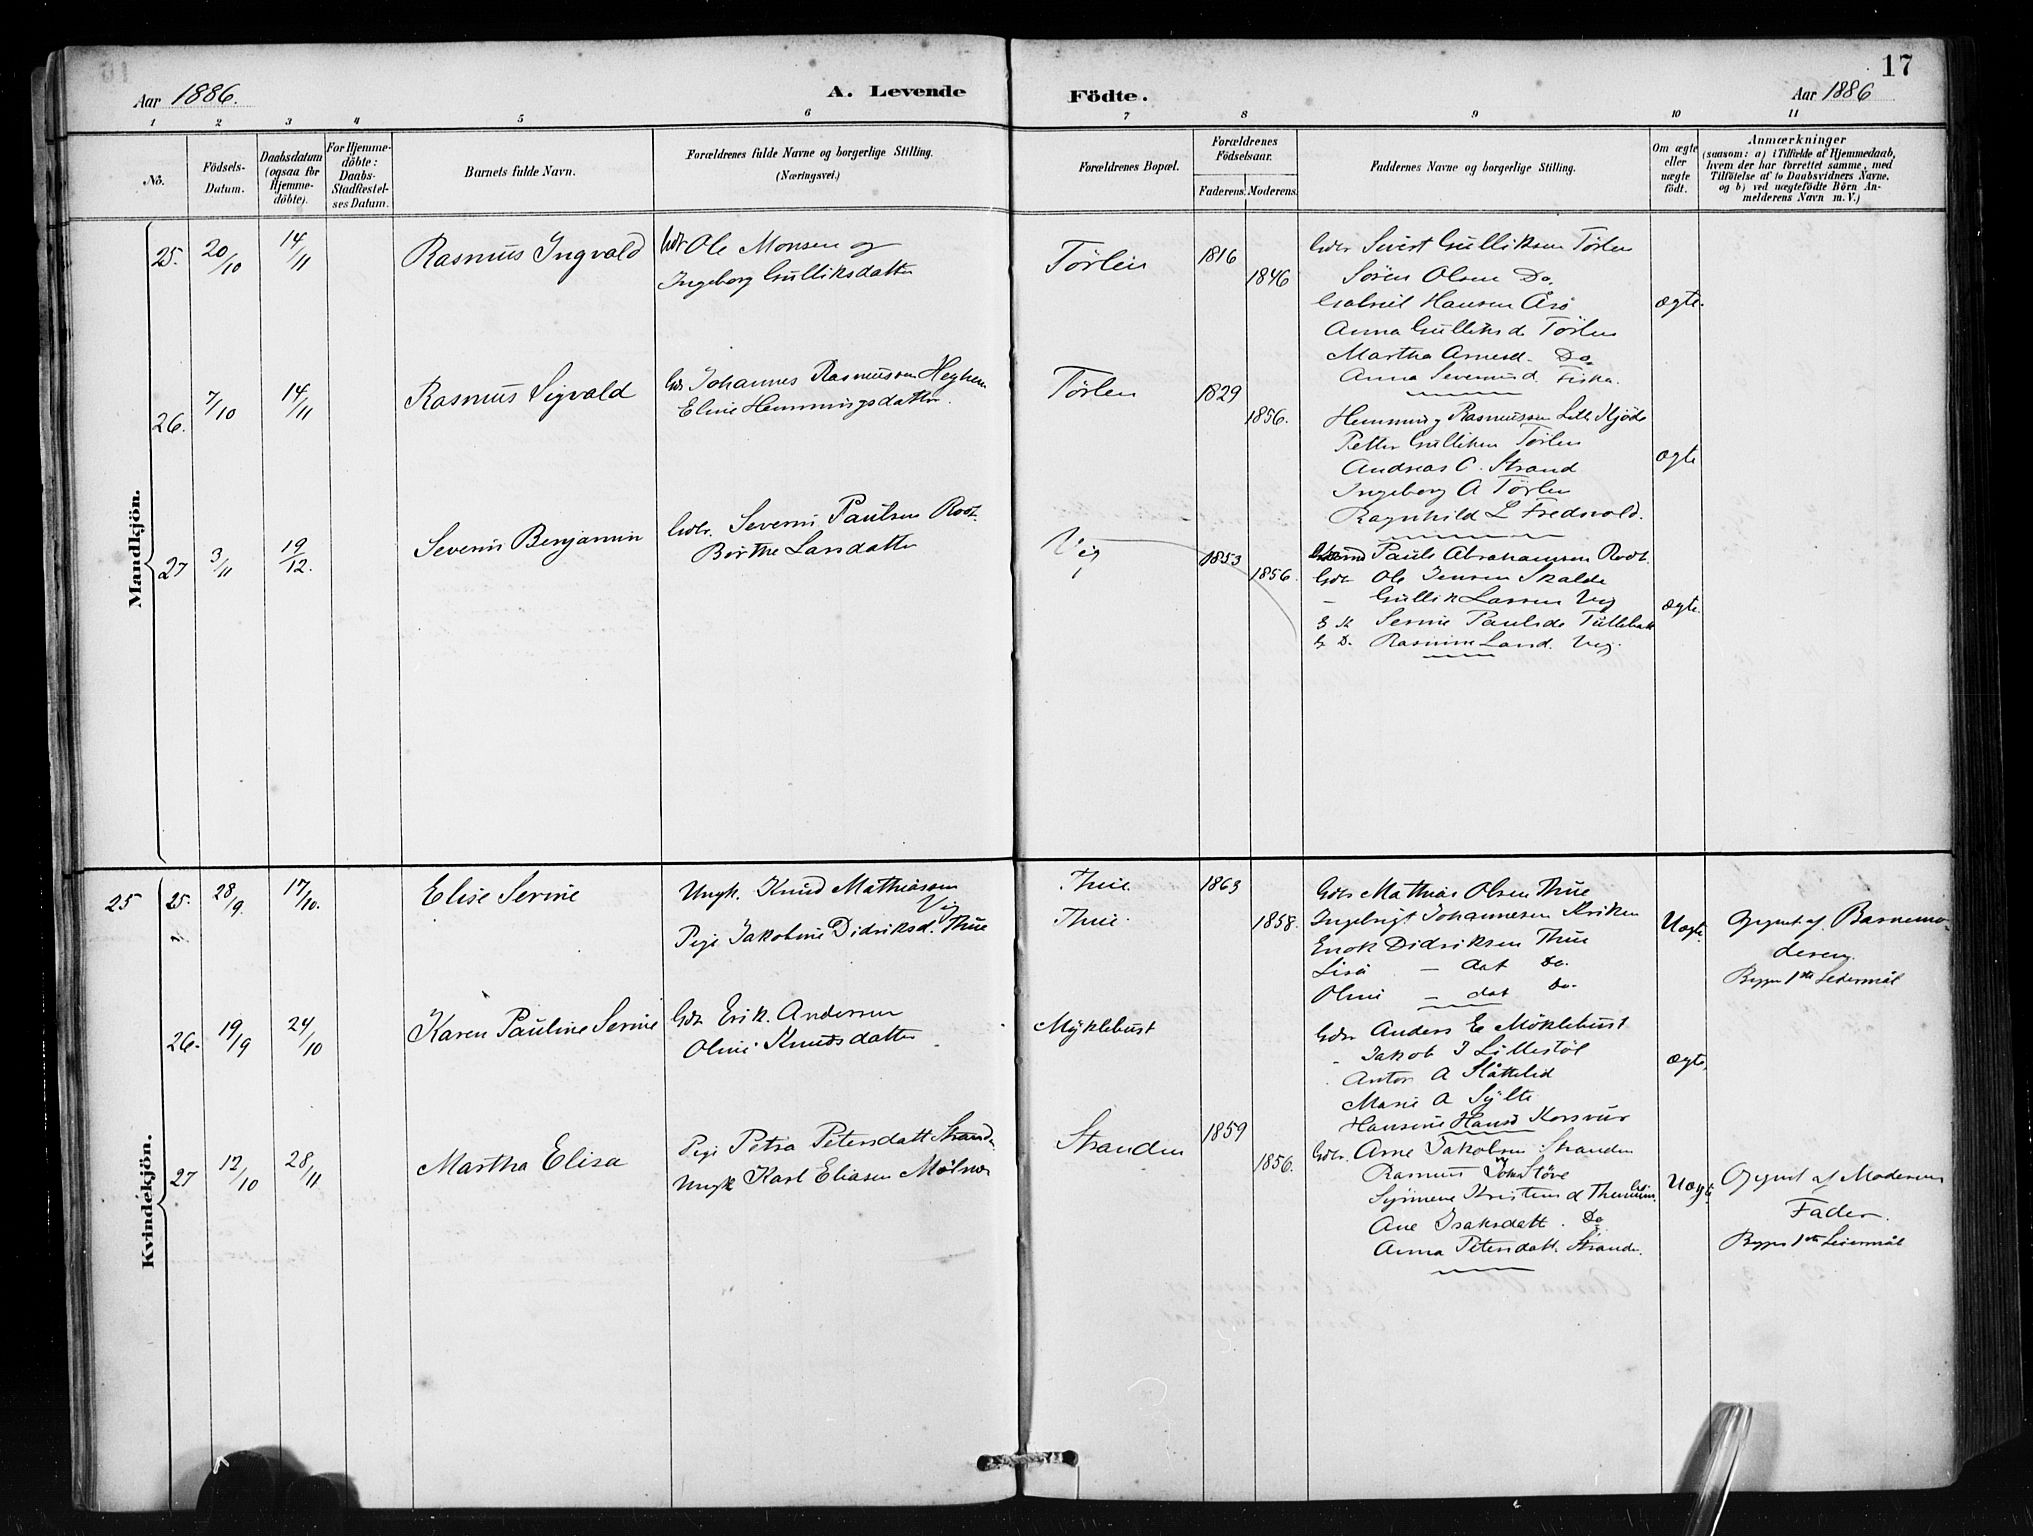 17
Aar 1886. A. Levende Födte. Aar 1886
1 2 3 4 5 6 7 8 9 10 11
No.
Födsels-Datum.
Daabsdatum (ogsaa for Hjemme-döbte).
For Hjemme-döbte: Daabs-Stadfæstel-ses Datum.
Barnets fulde Navn.
Forældrenes fulde Navne og borgerlige Stilling.
(Næringsvei.)
Forældrenes Bopæl.
Forældrenes Födselsaar.
Faderens. Moderens.
Faddernes Navne og borgerlige Stilling.
Om ægte eller uægte födt.
Anmærkninger
(saasom: a) i Tilfælde af Hjemmedaab,
hvem der har forrettet samme, med
Tilföielse af to Daabsvidners Navne,
og b) ved uægtefödte Börn An-
melderens Navn m. V.)
Mandkjön.
25. 20/10 14/11 Rasmus Ingvald Gbr Ole Monsen og
Ingeborg Gulliksdatter
Tørlen 1816 1846
Gdbr Sivert Gulliksen Tørlen
Søren Olsen Do.
Gabriel Hansen Årø
Anna Gulliksd Tørlen
Martha Arnesd. Do
Anna Severinsd. Fiska.
ægte.
26. 7/10 14/11 Rasmus Sigvald Gbr Johannes Rasmussen
Eline Hemmingsdatter.
Tørlen 1829 1856.
Hemming Rasmussen
Petter Gulliksen Tørlen
Andreas O. Strand
Ingeborg A Tørlen
Ragnhild L Fredsvold.
ægte
27 3/11 19/12. Severin Benjamin Gdbr. Severin Paulsen Root.
Birthe Larsdatter
Vig 1853 1856.
Paul Abrahamsen Rodt.
Gbr Ole Jensen Skalde
- Gullik Larsen Vig
G K Serine Paulsd
G D. Rasmine Larsd. Vig.
ægte.
Kvindekjön.
25 25. 28/9. 17/10. Elise Serine Ungk. Knud Mathiassen Vig
Pige Jakobine Didriksd. Thue
Thue 1863
Thue. 1858.
Gbr Mathias Olsen Thue
Ingebrigt Johannesen Kriken
Enok Didriksen Thue
Lisa — dat Do.
Oline — dat Do.
Uægte. Opgivet af Barnemo-
deren.
1ste Leiermål
26. 19/9 24/10 Karen Pauline Serine Gbr Erik. Andersen
Oline Knudsdatter
Myklebust
Gbr Anders E Möklebust
- Jakob J Lillestöl
Anton A Slåttelid
Marie A Sylte
Hansine Hansd Korsvur
ægte,
27 12/10 28/11 Martha Elisa Pige Petra Petersdatt Strand
Ungk Karl Eliasen
Stranden 1859 1856.
Gbr. Arne Jakobsen Stranden
Rasmus Støve
Kristens d
Ane Isaksdatt. Do
Anna Petersdatt. Strande.
Uægte Opgivet af Moderens
Fader.
1ste Leiermål